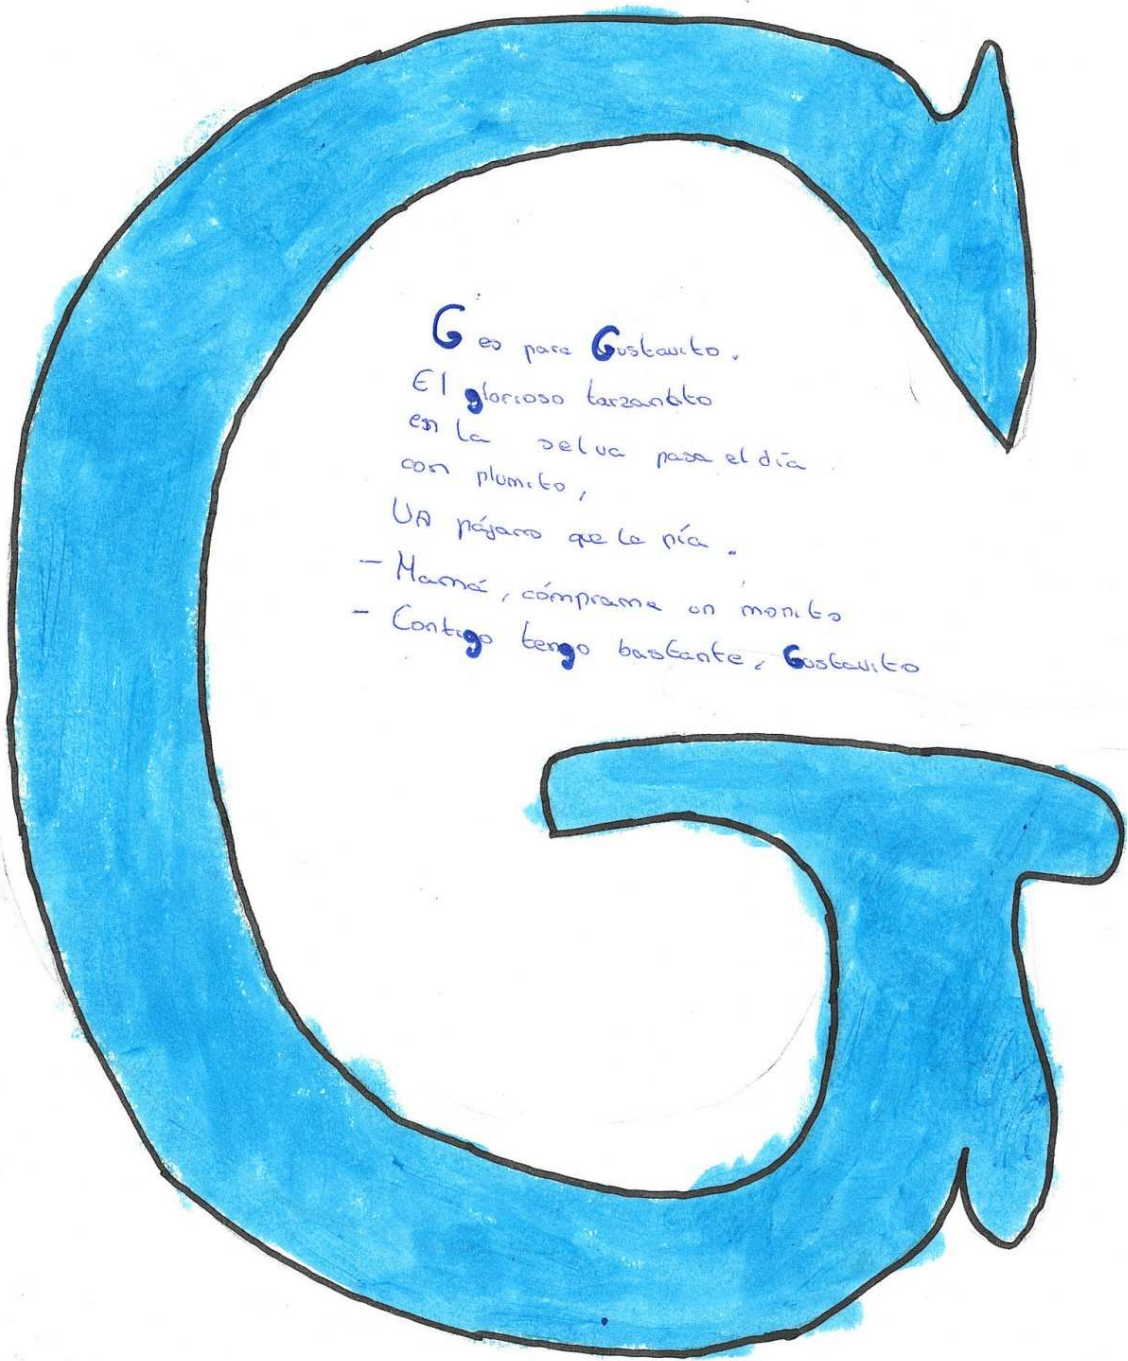 G es para Gustavito.
El glorioso tarzanito
en la selva pasa el día
con plumito,
Un pájaro que le pía.
- Mamá, cómprame un monito
- Contigo tengo bastante, Gustavito